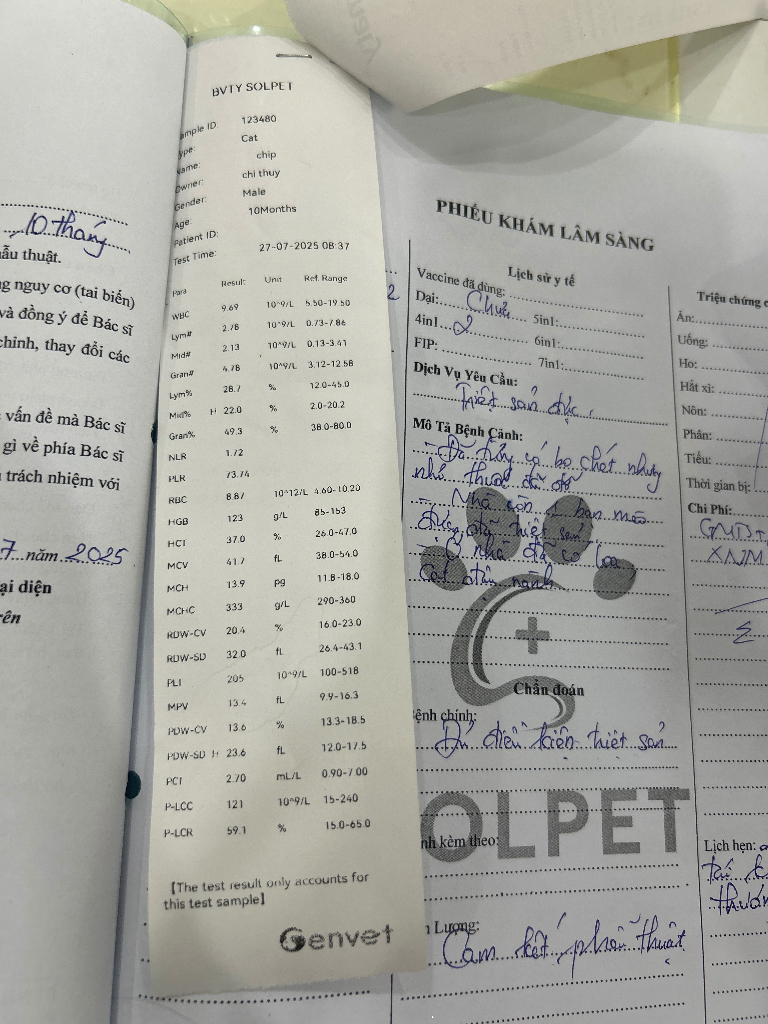 10 tháng
ẫu thuật.
g nguy cơ (tai biến)
và đồng ý để Bác sĩ
chỉnh, thay đổi các
vấn đề mà Bác sĩ
gì về phía Bác sĩ
trách nhiệm với
7 năm 2025
ại diện
rên
BVTY SOLPET
ample ID: 123480
ype: Cat
Name: chip
Owner: chi thuy
Gender: Male
Age: 10Months
Patient ID:
Test Time: 27-07-2025 08:37
Para Result Unit Ref. Range
WBC 9.69 10^9/L 5.50-19.50
Lym# 2.78 10^9/L 0.73-7.86
Mid# 2.13 10^9/L 0.13-3.41
Gran# 4.78 10^9/L 3.12-12.58
Lym% 28.7 % 12.0-45.0
Mid% H 22.0 % 2.0-20.2
Gran% 49.3 % 38.0-80.0
NLR 1.72
PLR 73.74
RBC 8.87 10^12/L 4.60-10.20
HGB 123 g/L 85-153
HCT 37.0 % 26.0-47.0
MCV 41.7 fL 38.0-54.0
MCH 13.9 pg 11.8-18.0
MCHC 333 g/L 290-360
RDW-CV 20.4 % 16.0-23.0
RDW-SD 32.0 fL 26.4-43.1
PLT 205 10^9/L 100-518
MPV 13.4 fL 9.9-16.3
PDW-CV 13.6 % 13.3-18.5
PDW-SD H 23.6 fL 12.0-17.5
PCT 2.70 mL/L 0.90-7.00
P-LCC 121 10^9/L 15-240
P-LCR 59.1 % 15.0-65.0
[The test result only accounts for
this test sample]
Genvet
PHIẾU KHÁM LÂM SÀNG
Lịch sử y tế
Vaccine đã dùng:
Dại: Chưa 5in1:
4in1 2 6in1:
FIP: 7in1:
Dịch Vụ Yêu Cầu:
Triệt sản đực.
Mô Tả Bệnh Cảnh:
- Đã từng có bọ chét nhưng
nhỏ thuốc đã đỡ
- Nhà còn 1 bạn mèo
đực đã triệt sản
- Ở nhà đã có loa
Cát đậu nành
Chẩn đoán
ệnh chính:
Đủ điều kiện triệt sản
SOLPET
nh kèm theo:
n Lượng:
Cam kết phẫu thuật
Triệu chứng
Ăn:
Uống:
Ho:
Hắt xì:
Nôn:
Phân:
Tiểu:
Thời gian bị:
Chi Phí:
XNM
Lịch hẹn:
tái